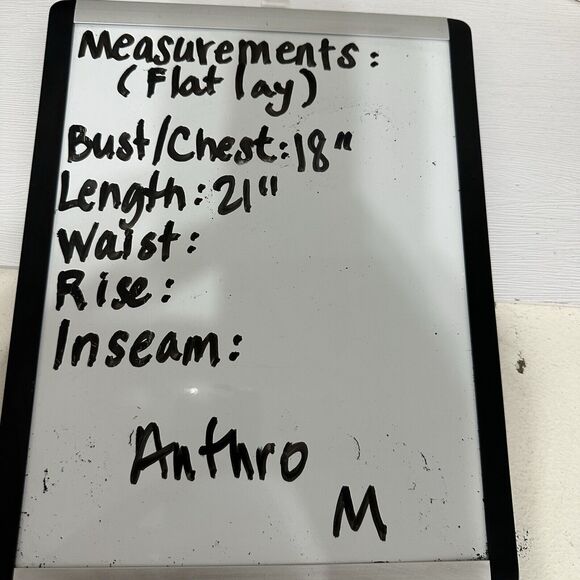 Measurements:
(Flat lay)
Bust/Chest: 18"
Length: 21"
Waist:
Rise:
Inseam:
Anthro
M